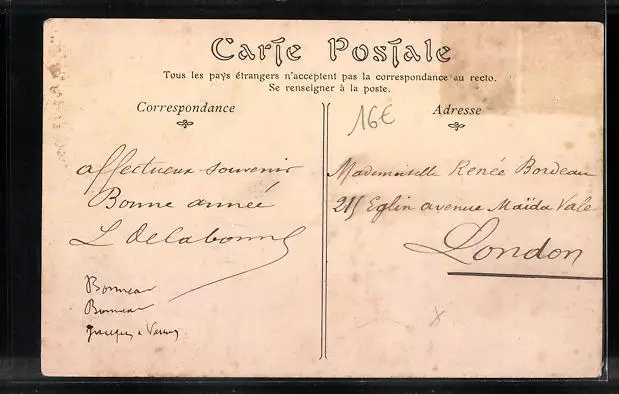 Carte Postale
Tous les pays étrangers n'acceptent pas la correspondance au recto.
Se renseigner à la poste.
Correspondance
Adresse
16€
affectueux souvenir
Bonne année
L Delabonne
Mademoiselle Renée Bordeau
215 Eglin avenue Maïda Vale
London